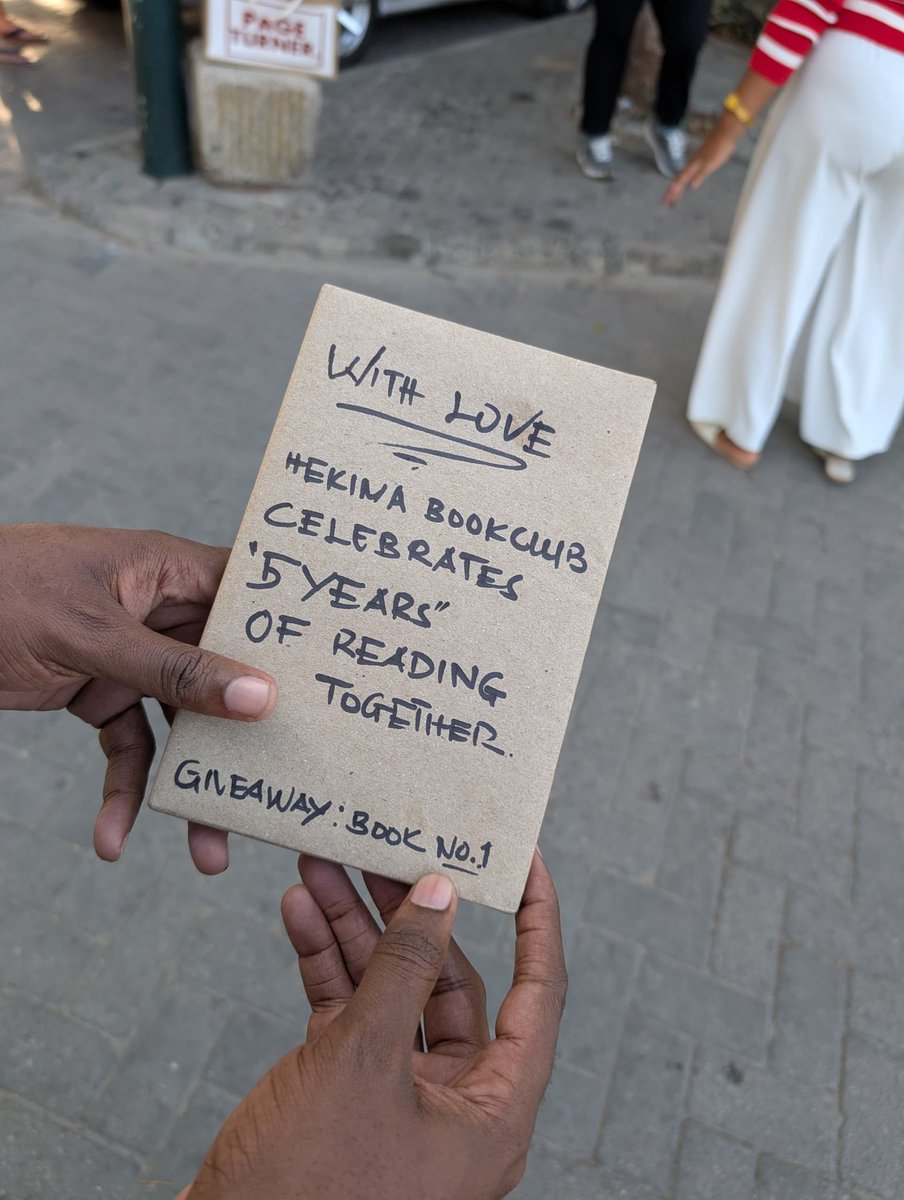 PAGE
TURNER.
WITH LOVE
HEKIMA BOOKCLUB
CELEBRATES
"5 YEARS"
OF READING
TOGETHER.
GIVEAWAY: BOOK NO.1